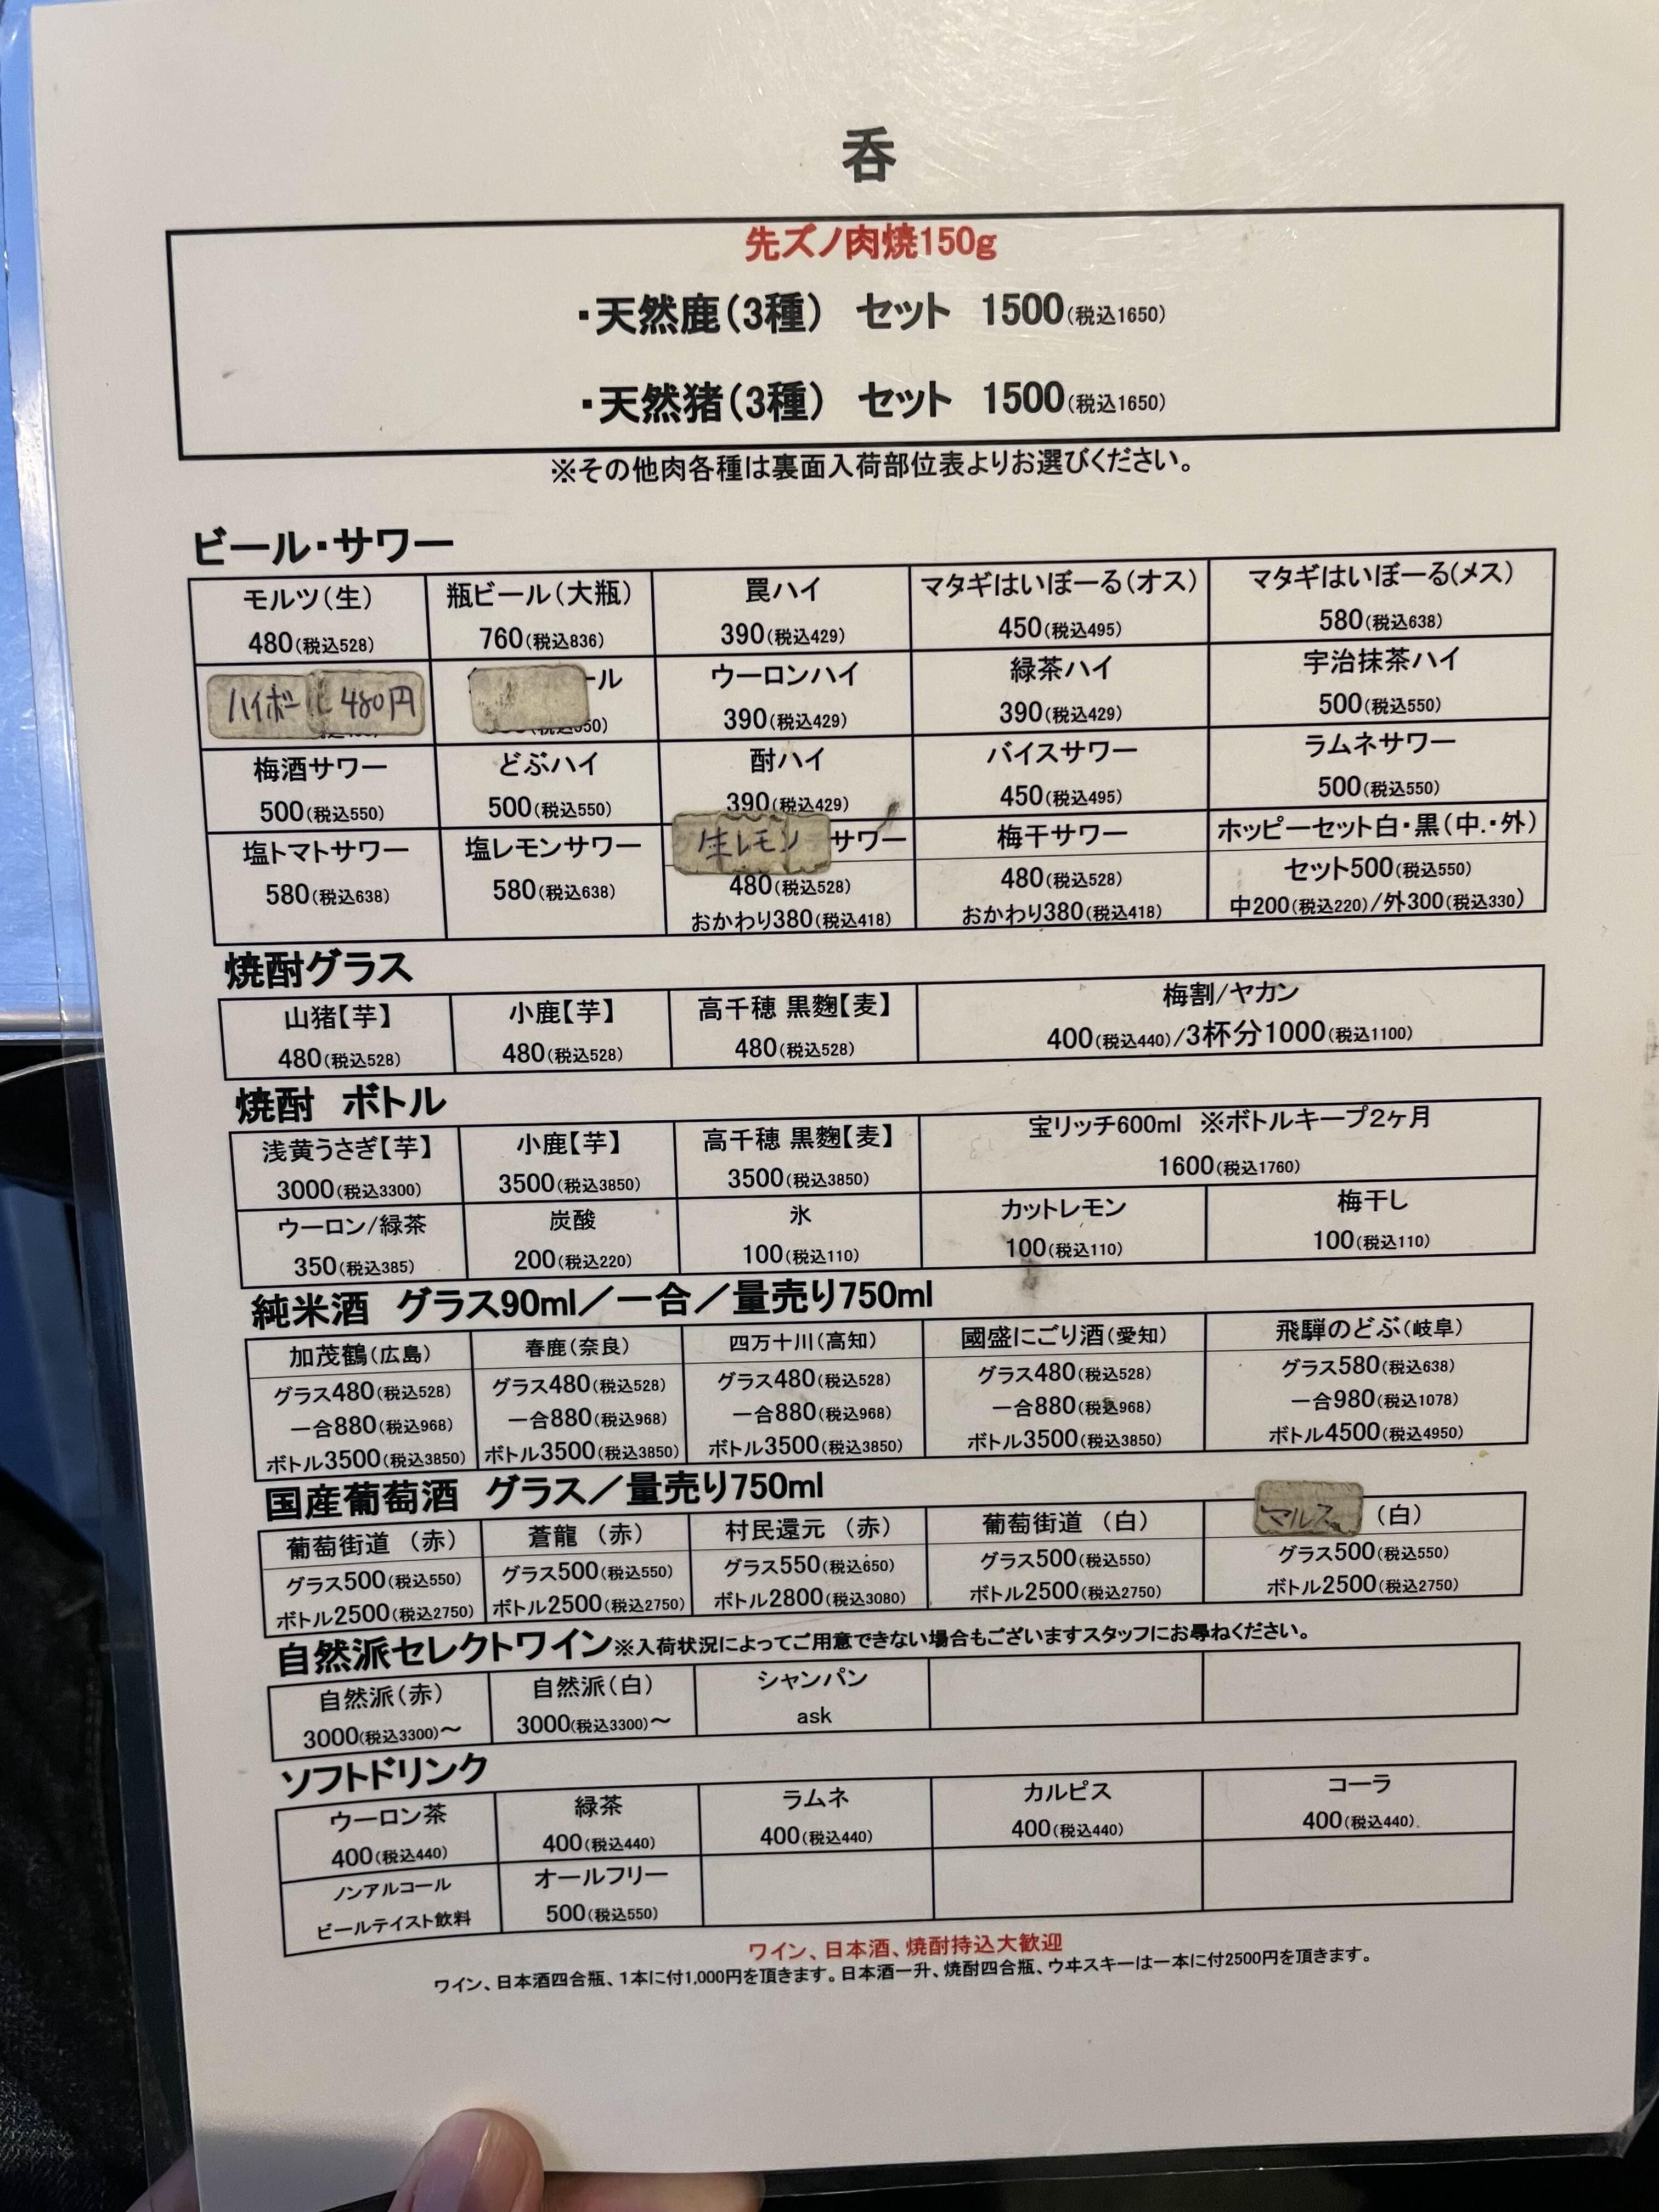 呑
先ズノ肉焼150g
・天然鹿（3種） セット 1500(税込1650)
・天然猪（3種） セット 1500(税込1650)
※その他肉各種は裏面入荷部位表よりお選びください。
ビール・サワー
モルツ（生） 瓶ビール（大瓶） 罠ハイ マタギはいぼーる（オス） マタギはいぼーる(メス)
480(税込528) 760(税込836) 390(税込429) 450(税込495) 580(税込638)
ハイボール 480円 ール ウーロンハイ 緑茶ハイ 宇治抹茶ハイ
390(税込429) 390(税込429) 500(税込550)
梅酒サワー どぶハイ 酎ハイ バイスサワー ラムネサワー
500(税込550) 500(税込550) 390(税込429) 450(税込495) 500(税込550)
塩トマトサワー 塩レモンサワー 生レモン サワー 梅干サワー ホッピーセット白・黒（中.・外）
580(税込638) 580(税込638) 480(税込528) 480(税込528) セット500(税込550)
おかわり380(税込418) おかわり380(税込418) 中200(税込220)/外300(税込330)
焼酎グラス
山猪【芋】 小鹿【芋】 高千穂 黒麹【麦】 梅割/ヤカン
480(税込528) 480(税込528) 480(税込528) 400(税込440)/3杯分1000(税込1100)
焼酎 ボトル
浅黄うさぎ【芋】 小鹿【芋】 高千穂 黒麹【麦】 宝リッチ600ml ※ボトルキープ2ヶ月
3000(税込3300) 3500(税込3850) 3500(税込3850) 1600(税込1760)
ウーロン/緑茶 炭酸 氷 カットレモン 梅干し
350(税込385) 200(税込220) 100(税込110) 100(税込110) 100(税込110)
純米酒 グラス90ml／一合／量売り750ml
加茂鶴(広島) 春鹿(奈良) 四万十川(高知) 國盛にごり酒(愛知) 飛騨のどぶ(岐阜)
グラス480(税込528) グラス480(税込528) グラス480(税込528) グラス480(税込528) グラス580(税込638)
一合880(税込968) 一合880(税込968) 一合880(税込968) 一合880(税込968) 一合980(税込1078)
ボトル3500(税込3850) ボトル3500(税込3850) ボトル3500(税込3850) ボトル3500(税込3850) ボトル4500(税込4950)
国産葡萄酒 グラス／量売り750ml
葡萄街道 （赤） 蒼龍 （赤） 村民還元 （赤） 葡萄街道 （白） マルス （白）
グラス500(税込550) グラス500(税込550) グラス550(税込650) グラス500(税込550) グラス500(税込550)
ボトル2500(税込2750) ボトル2500(税込2750) ボトル2800(税込3080) ボトル2500(税込2750) ボトル2500(税込2750)
自然派セレクトワイン※入荷状況によってご用意できない場合もございますスタッフにお尋ねください。
自然派(赤) 自然派(白) シャンパン
3000(税込3300)～ 3000(税込3300)～ ask
ソフトドリンク
ウーロン茶 緑茶 ラムネ カルピス コーラ
400(税込440) 400(税込440) 400(税込440) 400(税込440) 400(税込440)
ノンアルコール オールフリー
ビールテイスト飲料 500(税込550)
ワイン、日本酒、焼酎持込大歓迎
ワイン、日本酒四合瓶、1本に付1,000円を頂きます。日本酒一升、焼酎四合瓶、ウヰスキーは一本に付2500円を頂きます。